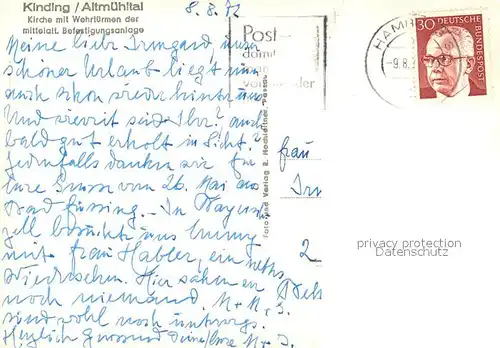 Kinding / Altmühltal
Kirche mit Wehrtürmen der
mittelalt. Befestigungsanlage
8.8.72
Meine liebe Irmgard, unser
schöner Urlaub liegt nun
auch schon wieder hinter uns
Und wieweit seid Ihr? auch
bald gut erholt in Sicht?
Jedenfalls danken wir für
Eure Grüsse vom 26. Mai aus
Bad Füssing. In Bayrisch
zell besuchte uns
mit Frau Habler, ein nettes
Wiedersehen. Hier sahen wir
noch niemand. M + M.
sind wohl noch unterwegs.
Herzlich grüssend Deine/Eure M + J.
Post-
damit
HAMB
-9.8.7
30 DEUTSCHE
BUNDESPOST
Foto und Verlag
Frau
Irm
2
privacy protection
Datenschutz